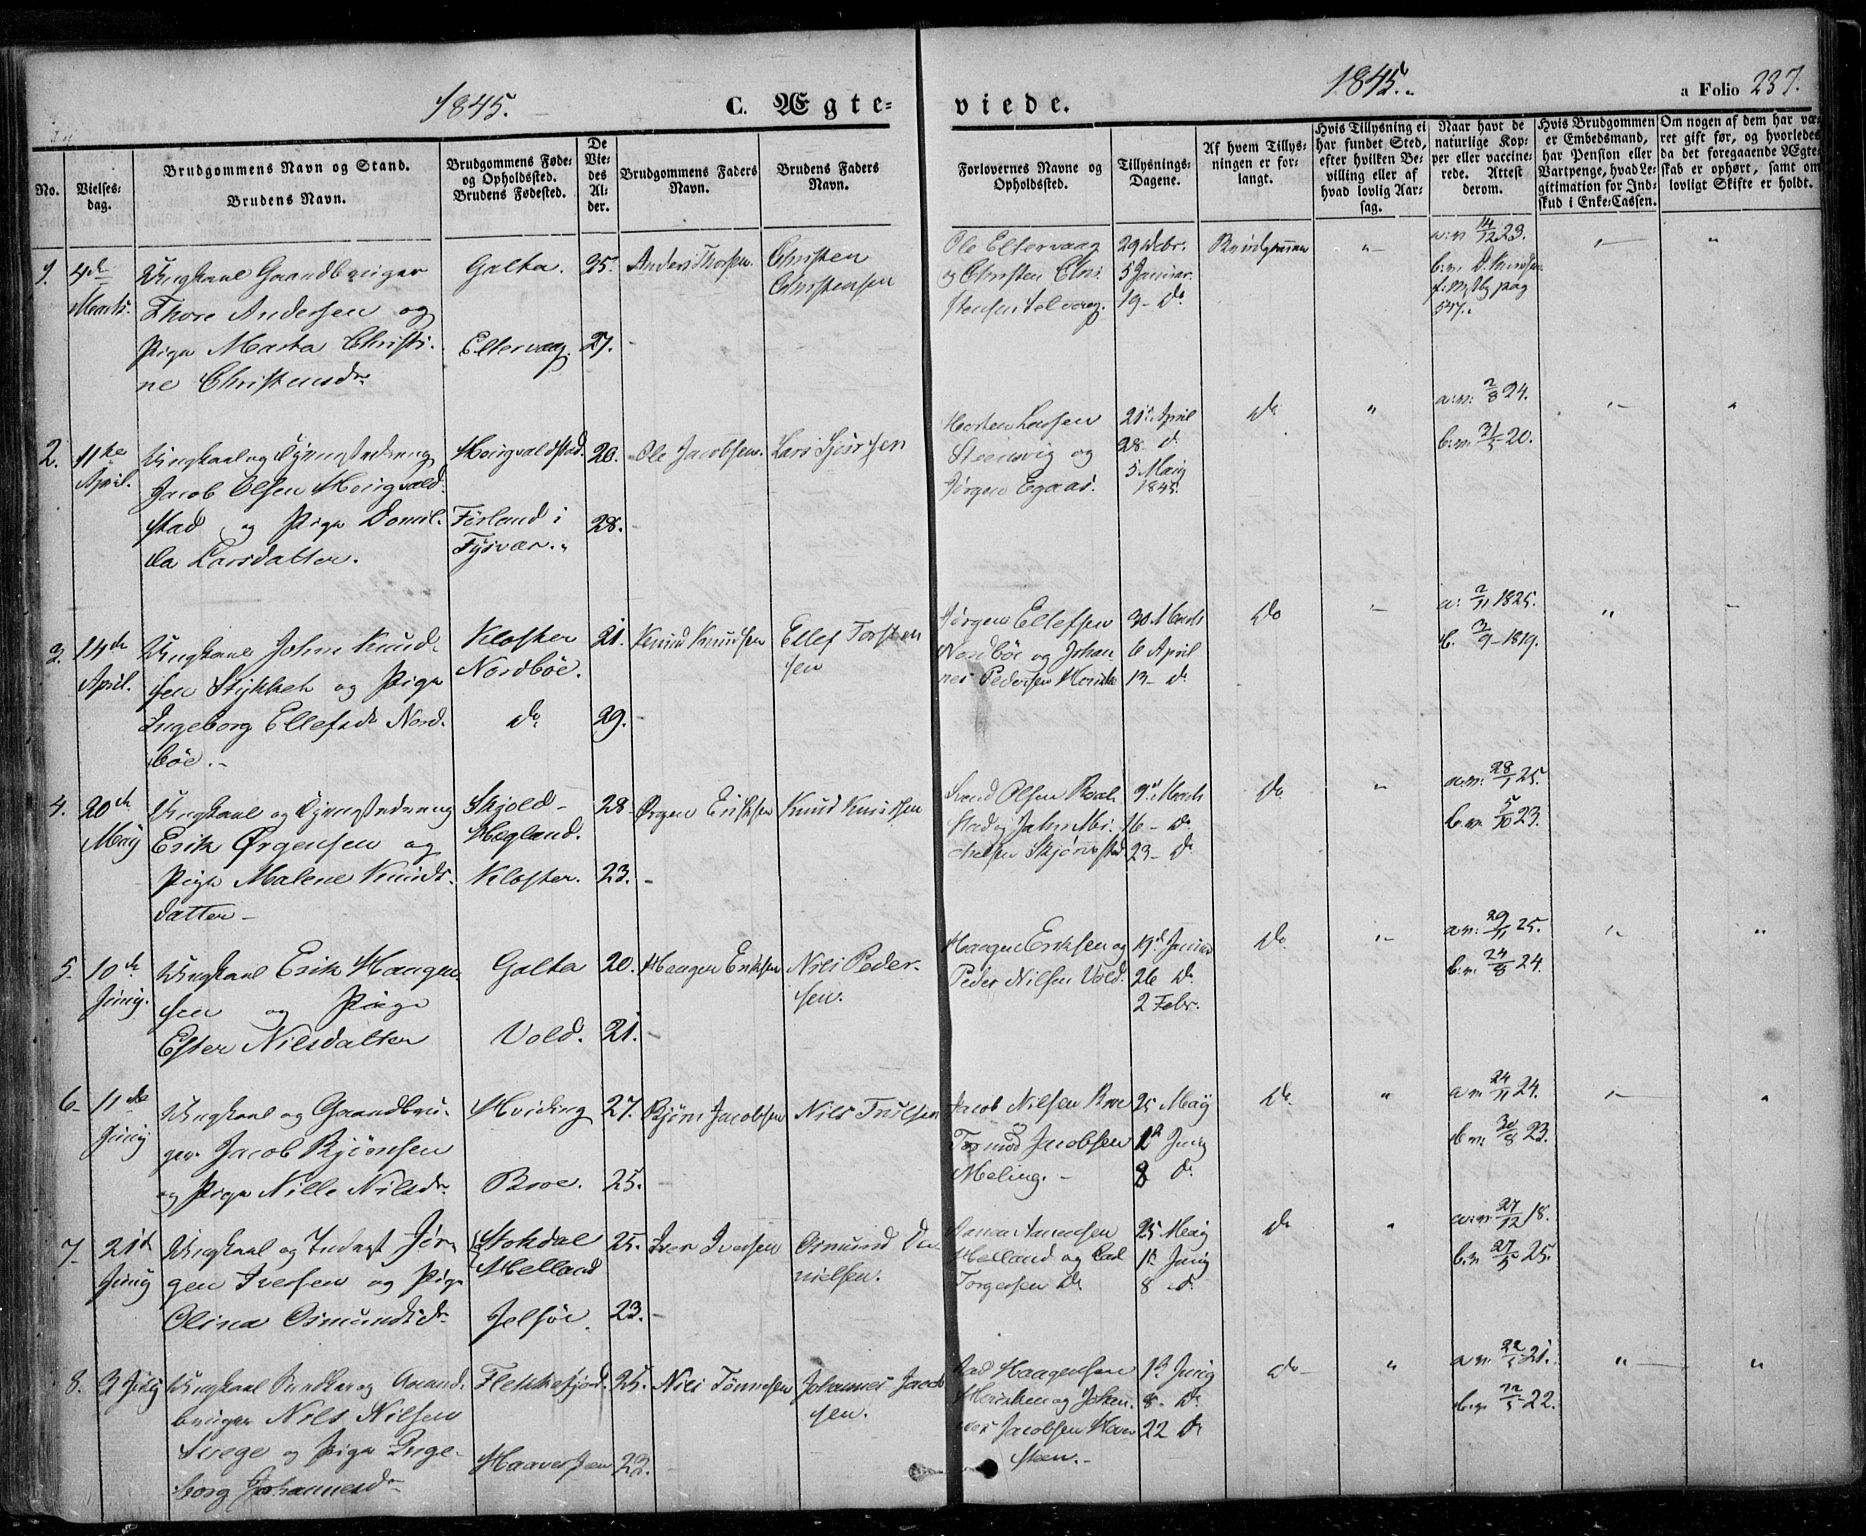 1845.
C. Ægte-
viede.
1845.
a Folio 237.
No.
Vielses-
dag.
Brudgommens Navn og Stand.
Brudens Navn.
Brudgommens Føde-
og Opholdsted.
Brudens Fødested.
De
Vie-
des
Al-
der.
Brudgommens Faders
Navn.
Brudens Faders
Navn.
Forlovernes Navne og
Opholdsted.
Tillysnings-
Dagene.
Af hvem Tillys-
ningen er for-
langt.
Hvis Tillysning ei
har fundet Sted,
efter hvilken Be-
villing eller af
hvad lovlig Aar-
sag.
Naar havt de
naturlige Kop-
per eller vaccine-
rede. Attest
derom.
Hvis Brudgommen
er Embedsmand,
har Pension eller
Vartpenge, hvad Le-
gitimation for Ind-
skud i Enke-Cassen.
Om nogen af dem har væ-
ret gift før, og hvorledes
da det foregaaende Ægte-
skab er ophørt, samt om
lovligt Skifte er holdt.
1.
4de
Marts.
Ungkarl Gaardbruger
Thore Andersen og
Pige Marta Christi-
ne Christensdr.
Galta.
Eltervaag.
25.
27.
Anders Thorsen.
Christen
Christensen
Ole Eltervaag
og Christen Chri-
stensen
29 Debr.
5 Januar.
19- Do
Brudgommen
a: v: 14/12 23.
b: v:
pag
537.
2.
11te
April.
Ungkarl og
Jacob Olsen Hougvald-
stad og Pige Domil-
la Larsdatter.
Hougvaldstad.
Førland i
Tysvær.
20.
28.
Ole Jacobsen.
Lars
Morten Larsen
Steensvig og
Jørgen Egaas.
21de April
28 d.
5 Maij
1845.
Do
a: v: 2/8 24.
b: v: 21/5 20.
3.
14de
April.
Ungkarl John Knud-
sen Stykket og Pige
Ingeborg Ellefsdr Nord-
bøe.
Kloster
Nordbøe.
Do
21.
29.
Knud Knudsen
Ellef Torsten-
sen
Jørgen Ellefsen
Nordbøe og Johan-
nes Pedersen
30 Marts
6 April
13- Do
Do
a: 2/11 1825.
b. 3/9 1819.
4.
20de
Maij
Ungkarl og
Erik Ørgensen og
Pige Malene Knuds-
datter
Skjold-
Hegland.
Kloster.
28.
23.
Ørgen Eriksen
Knud Knudsen
Svend Olsen
stad og John Mi-
chelsen
9de Marts
16- Do
23- Do
Do
a. v: 28/1 25.
b. v. 5/10 23.
5.
10de
Junij.
Ungkarl Erik Haagen-
sen og Pige
Ester Nilsdatter
Galta
Vold.
20.
21.
Haagen Eriksen
Nils Peder-
sen.
Haagen Eriksen og
Peder Nilsen Vold.
19de Januar
26 Do
2 Febr.
Do
a v: 29/11 25.
b: v: 24/8 24.
6
11de
Junij
Ungkarl og Gaardbru-
ger Jacob Bjørnsen
og Pige Nille Nilsdr.
Hviding
Broe.
27.
25.
Bjørn Jacobsen
Nils Trulsen
Jacob Nilsen Broe
Tormod Jacobsen
Meling.
25 Maij
1ste Junij
8 Do
Do
a v: 24/11 24.
b v: 30/8 23.
7
21de
Junij
Ungkarl og Inderst Jør-
gen Iversen og Pige
Olina Osmundsdr
Stokdal
Helland
Jelsøe.
25.
23.
Iver Iversen
Osmund Da-
nielsen.
Helland og
Torgersen Do
25 Maij
1ste Junij
8 d.
Do
a: v: 27/12 18.
b. v 27/5 25.
8.
9 Julij
Ungkarl og Gaard-
bruger Nils Nilsen
og Pige Inge-
borg Johannesdr
Flekkefjord.
25.
23.
Nils Tønnesen
Johannes Jacob-
sen.
Haagensen
og Johan-
nes Jacobsen Haver-
steen.
1ste Junij
8- Do
22 Do
Do
a v: 22/5 21.
b: v: 12/5 22.